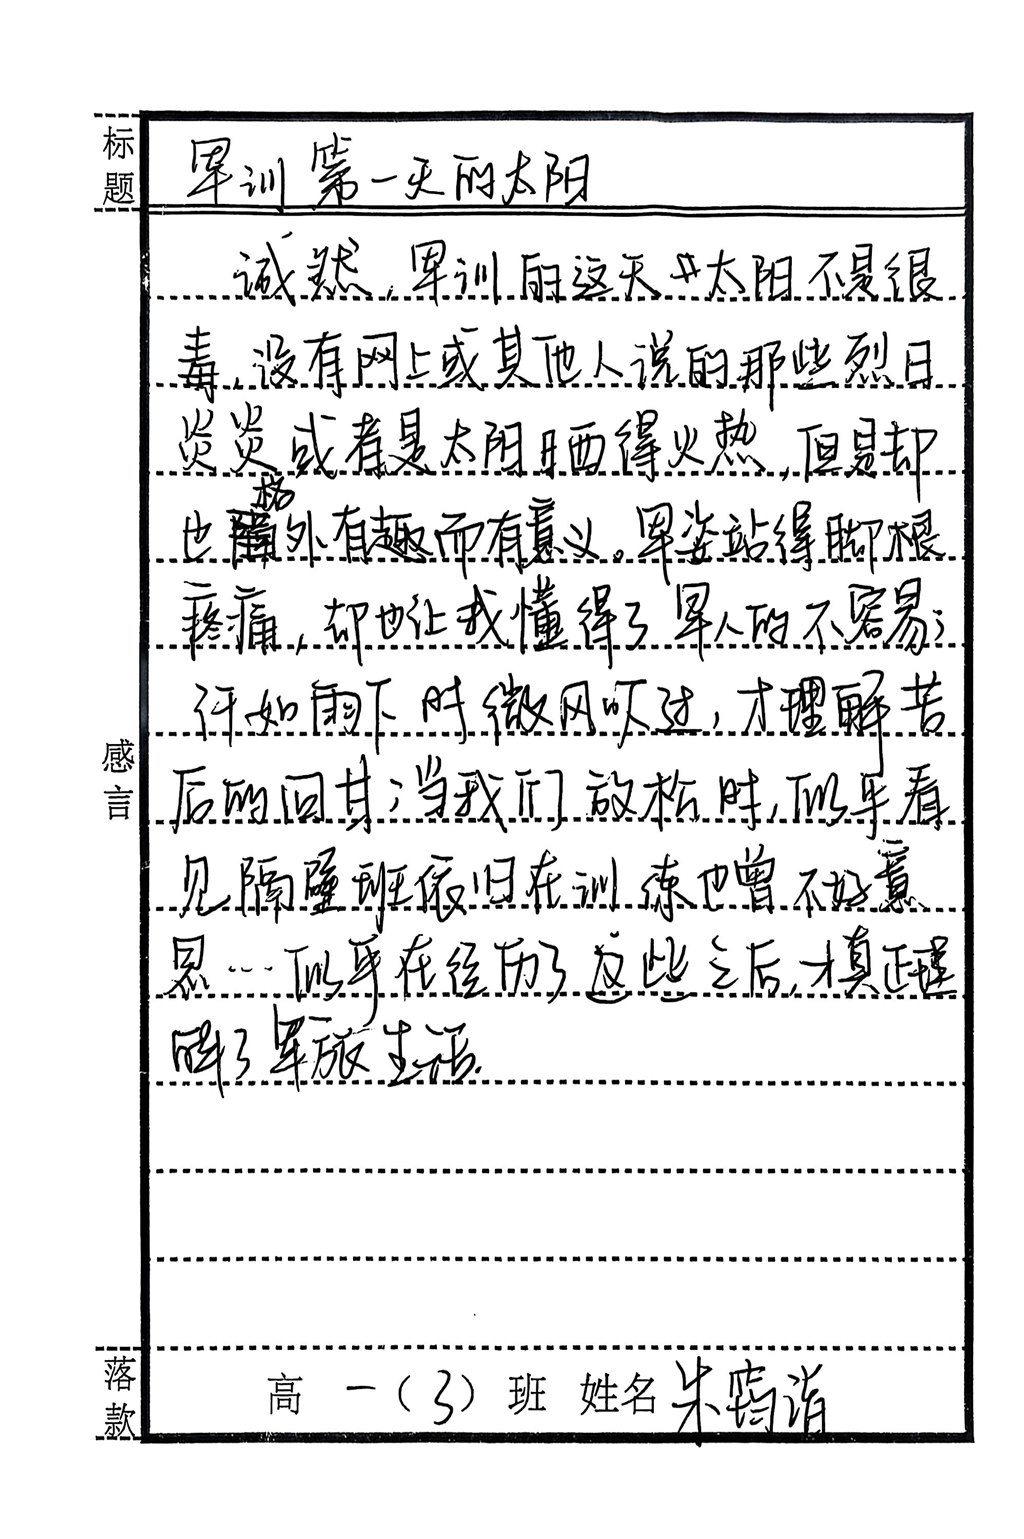 标题
军训第一天的太阳
诚然,军训的这天太阳不是很
毒,没有网上或其他人说的那些烈日
炎炎或者是太阳晒得火热,但是却
也格外有趣而有意义。军姿站得脚根
疼痛,却也让我懂得了军人的不容易;
汗如雨下时微风吹过,才理解苦
后的回甘;当我们放松时,似乎看
感言
见隔壁班依旧在训练也曾不好意
思…似乎在经历了这些之后,才真正理
解了军旅生活.
落款
高一(3)班 姓名 朱筠